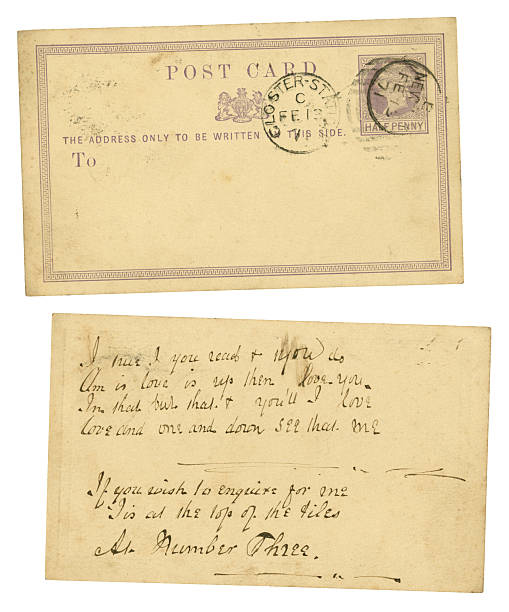 POST CARD
THE ADDRESS ONLY TO BE WRITTEN THIS SIDE.
To
HALF PENNY
C
FE 1
I true I you read & you is
Am is love is up then love you
In that but that & you'll I love
love and one and down see that me
If you wish to enquire for me
I is at the top of the tiles
At Number Three.